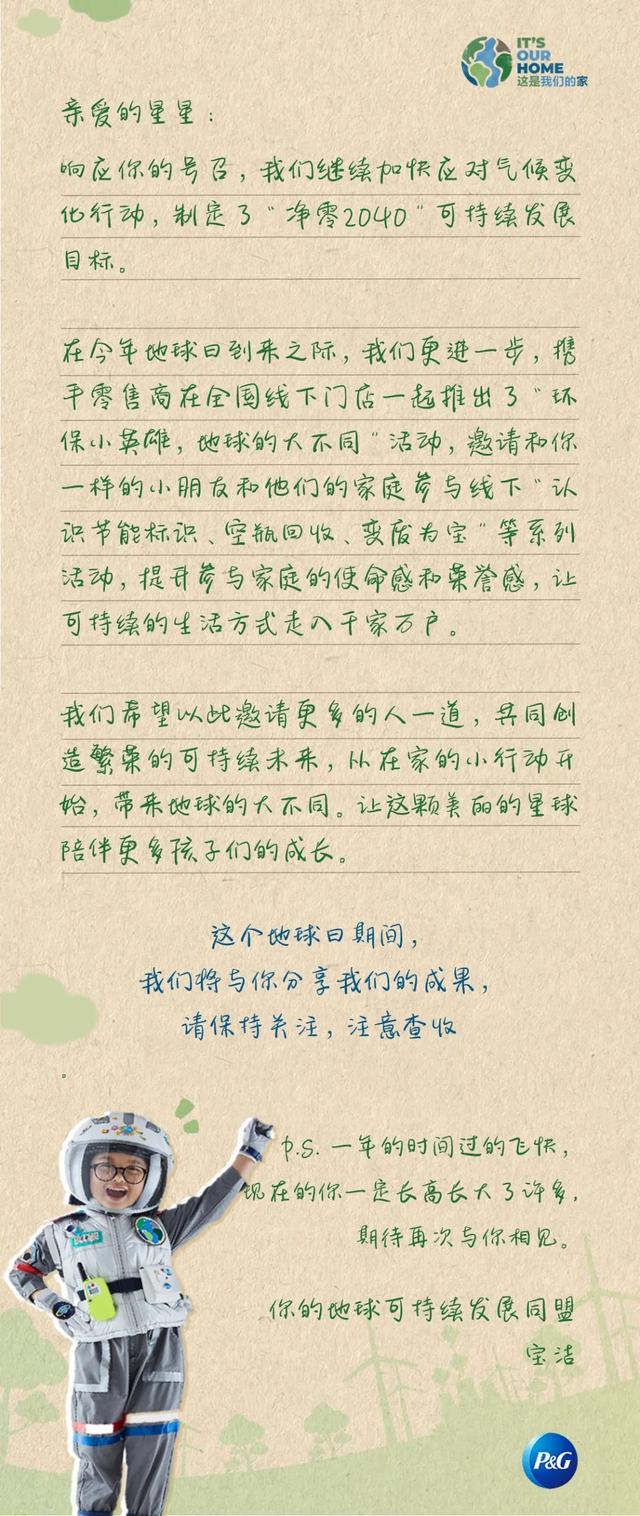 IT'S
OUR
HOME
这是我们的家
亲爱的星星：
响应你的号召，我们继续加快应对气候变
化行动，制定了“净零2040”可持续发展
目标。
在今年地球日到来之际，我们更进一步，携
手零售商在全国线下门店一起推出了“环
保小英雄，地球的大不同”活动，邀请和你
一样的小朋友和他们的家庭参与线下“认
识节能标识、空瓶回收、变废为宝”等系列
活动，提升参与家庭的使命感和荣誉感，让
可持续的生活方式走入千家万户。
我们希望以此邀请更多的人一道，共同创
造繁荣的可持续未来，从在家的小行动开
始，带来地球的大不同。让这颗美丽的星球
陪伴更多孩子们的成长。
这个地球日期间，
我们将与你分享我们的成果，
请保持关注，注意查收
。
p.s. 一年的时间过的飞快，
现在的你一定长高长大了许多，
期待再次与你相见。
你的地球可持续发展同盟
宝洁
P&G